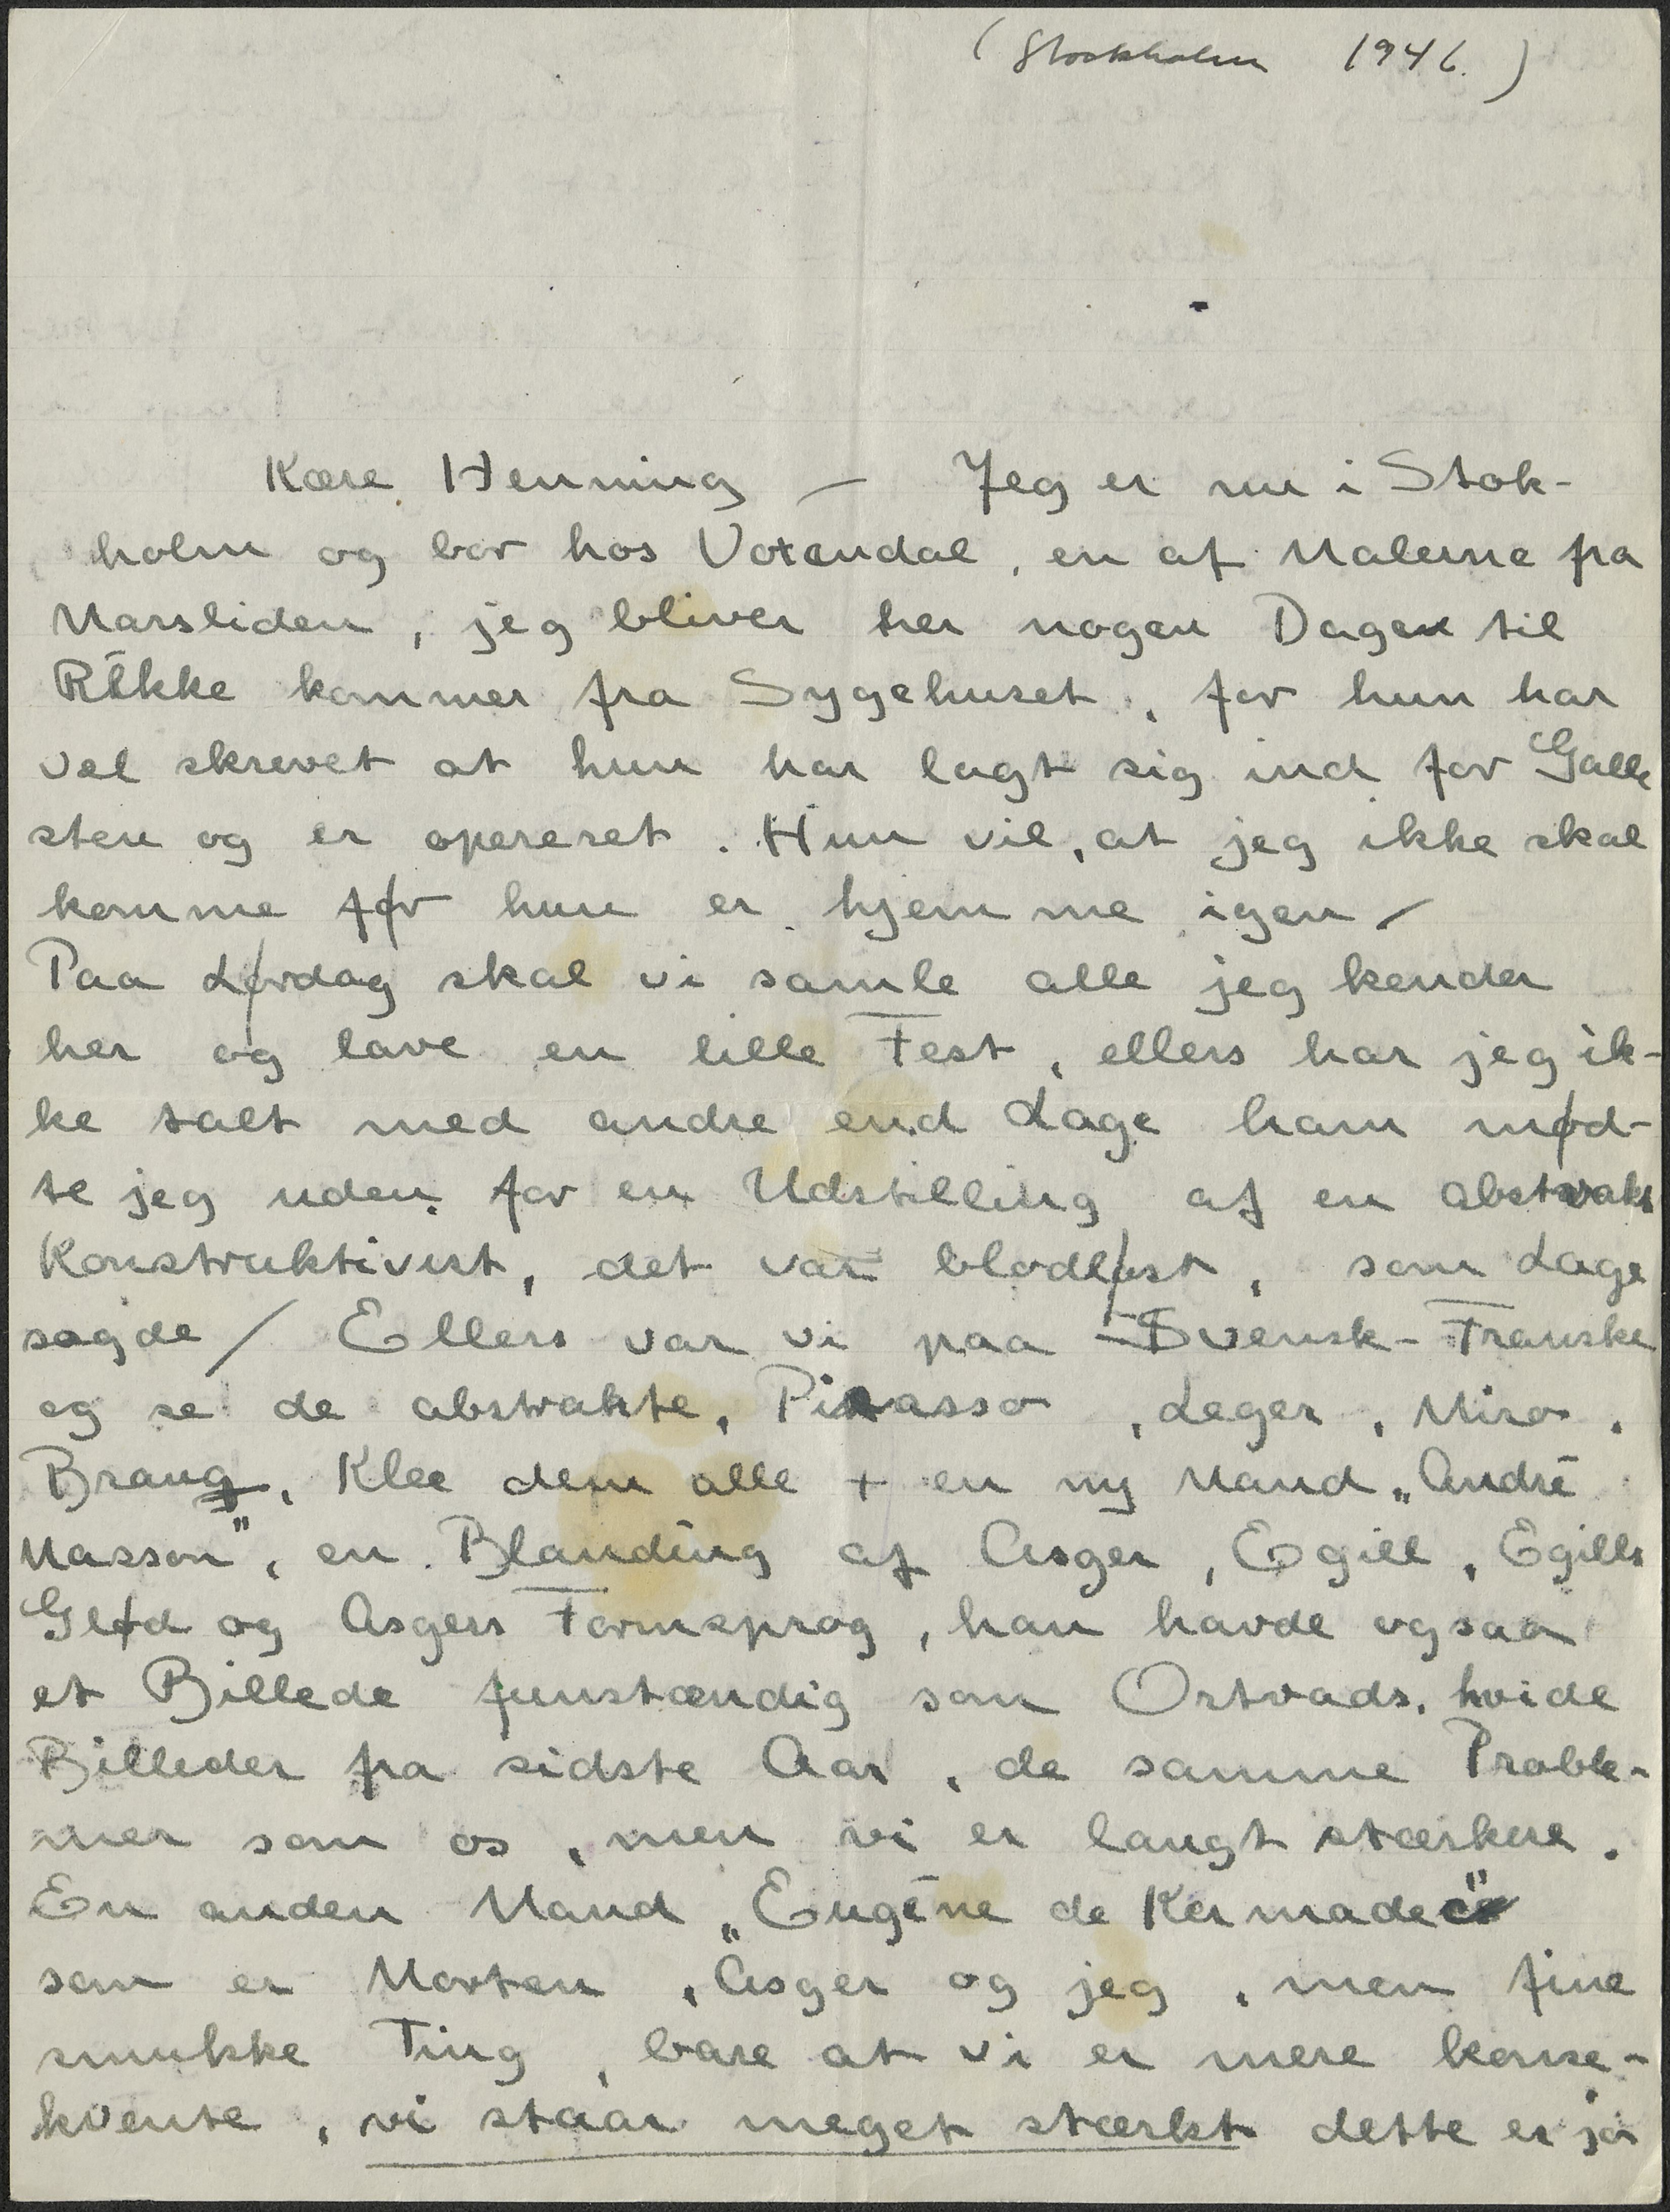 (Stockholm 1946.)
Kære Henning — Jeg er nu i Stok-
holm og bor hos Voxendal, en af Malerne fra
Marsliden, jeg bliver her nogen Dage til
Rikke kommer fra Sygehuset, for hun har
vel skrevet at hun har lagt sig ind for Galle
sten og er opereret. Hun vil, at jeg ikke skal
komme før hun er hjemme igen –
Paa Lørdag skal vi samle alle jeg kender
her og lave en lille Fest, ellers har jeg ik-
ke talt med andre end Lage ham mød-
te jeg uden for en Udstilling af en abstrakt
Konstruktivist, det var blodløst, som Lage
sagde / Ellers var vi paa Svensk-Franske
og se de abstrakte, Picasso, Leger, Miro,
Braaq, Klee dem alle + en ny Mand „André
Masson", en Blanding af Asger, Egill, Egills
Glød og Asgers Formsprog, han havde ogsaa
et Billede fuustændig som Ortvads, hvide
Billeder fra sidste Aar, de samme Proble-
mer som os, men vi er langt stærkere.
En anden Mand „Eugéne de Kermadec"
som er Morten, Asger og jeg, men fine
smukke Ting, bare at vi er mere konse-
kvente, vi staar meget stærkt dette er jo